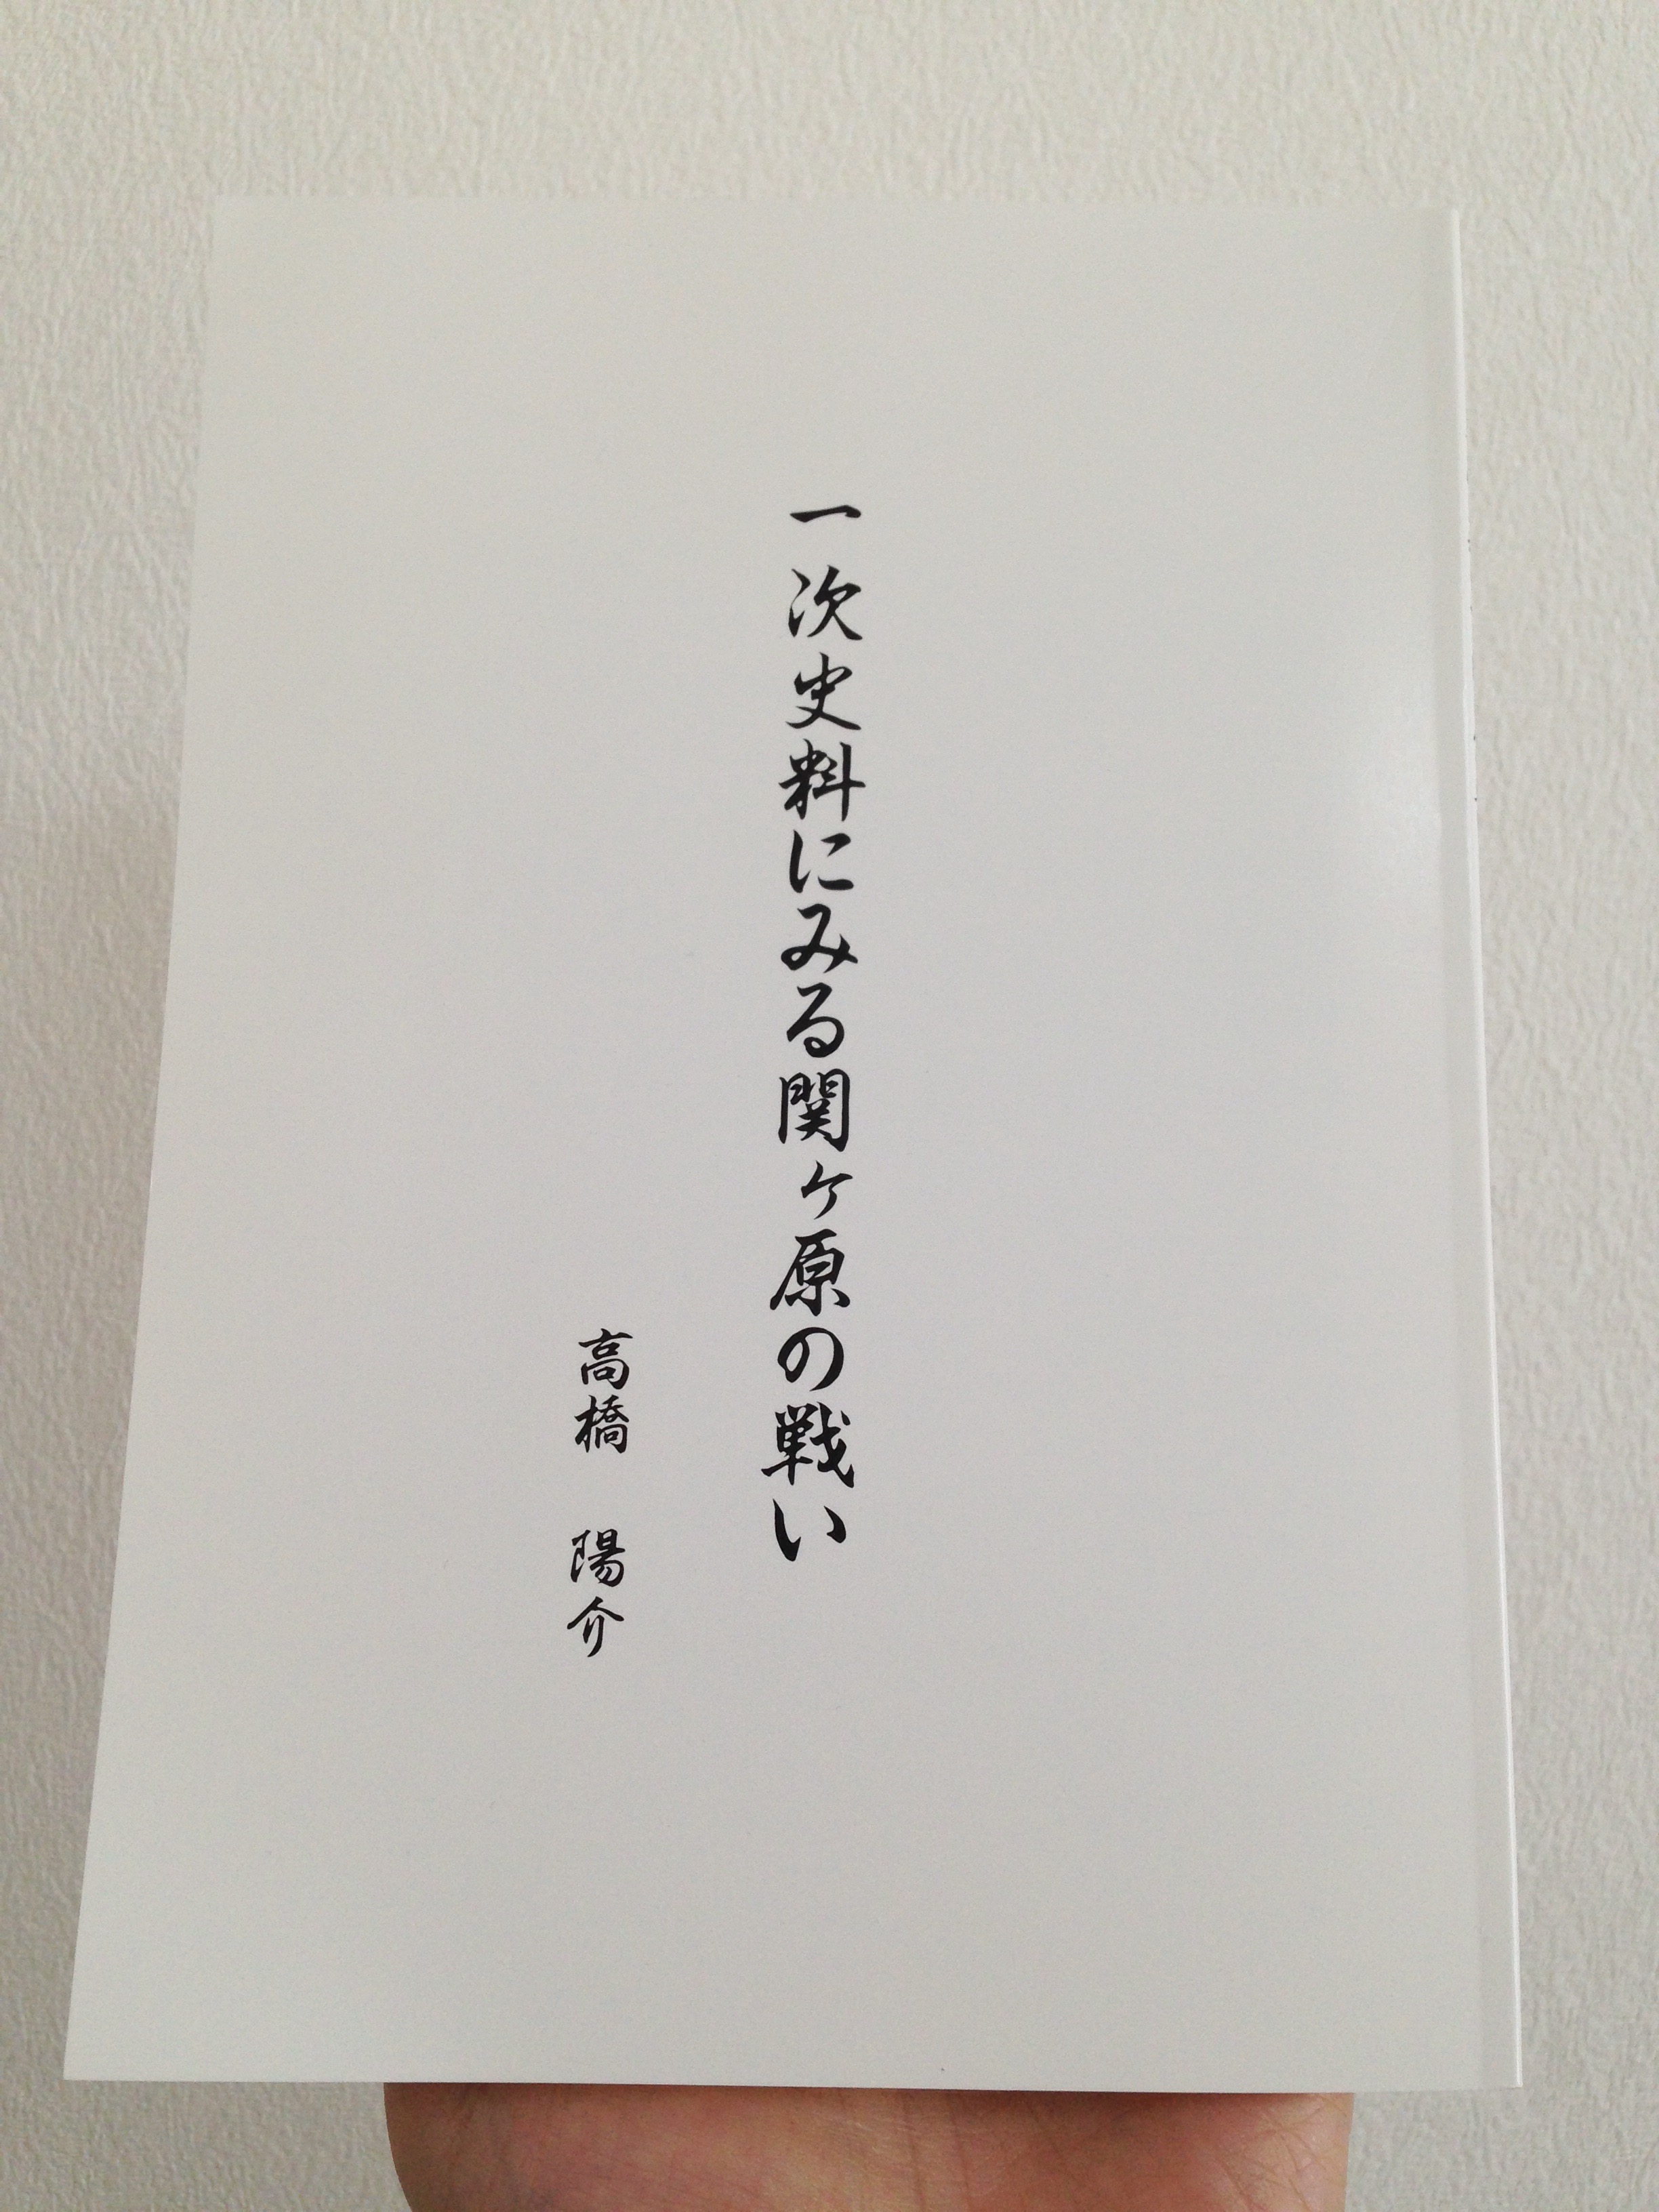 一次史料にみる関ヶ原の戦い
高橋 陽介